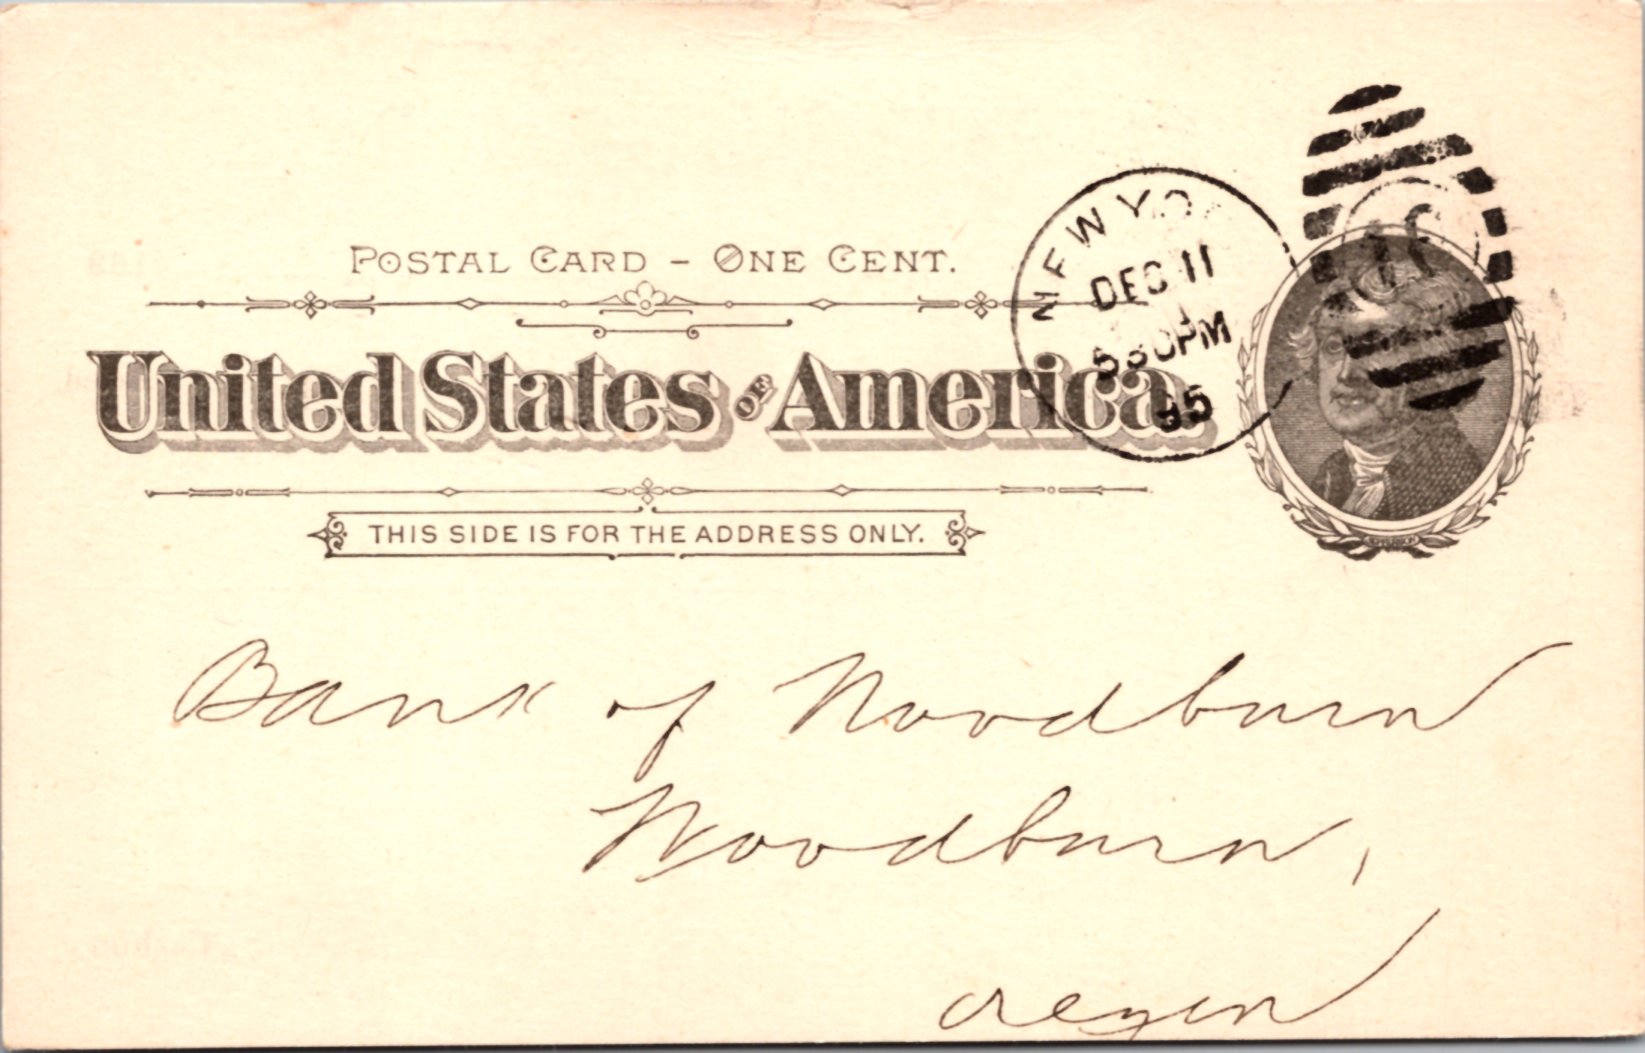 POSTAL CARD - ONE CENT.
United States OF America.
THIS SIDE IS FOR THE ADDRESS ONLY.
NEW YO
DEC 11
530PM
95
JEFFERSON
Bank of Woodburn
Woodburn,
Oregon